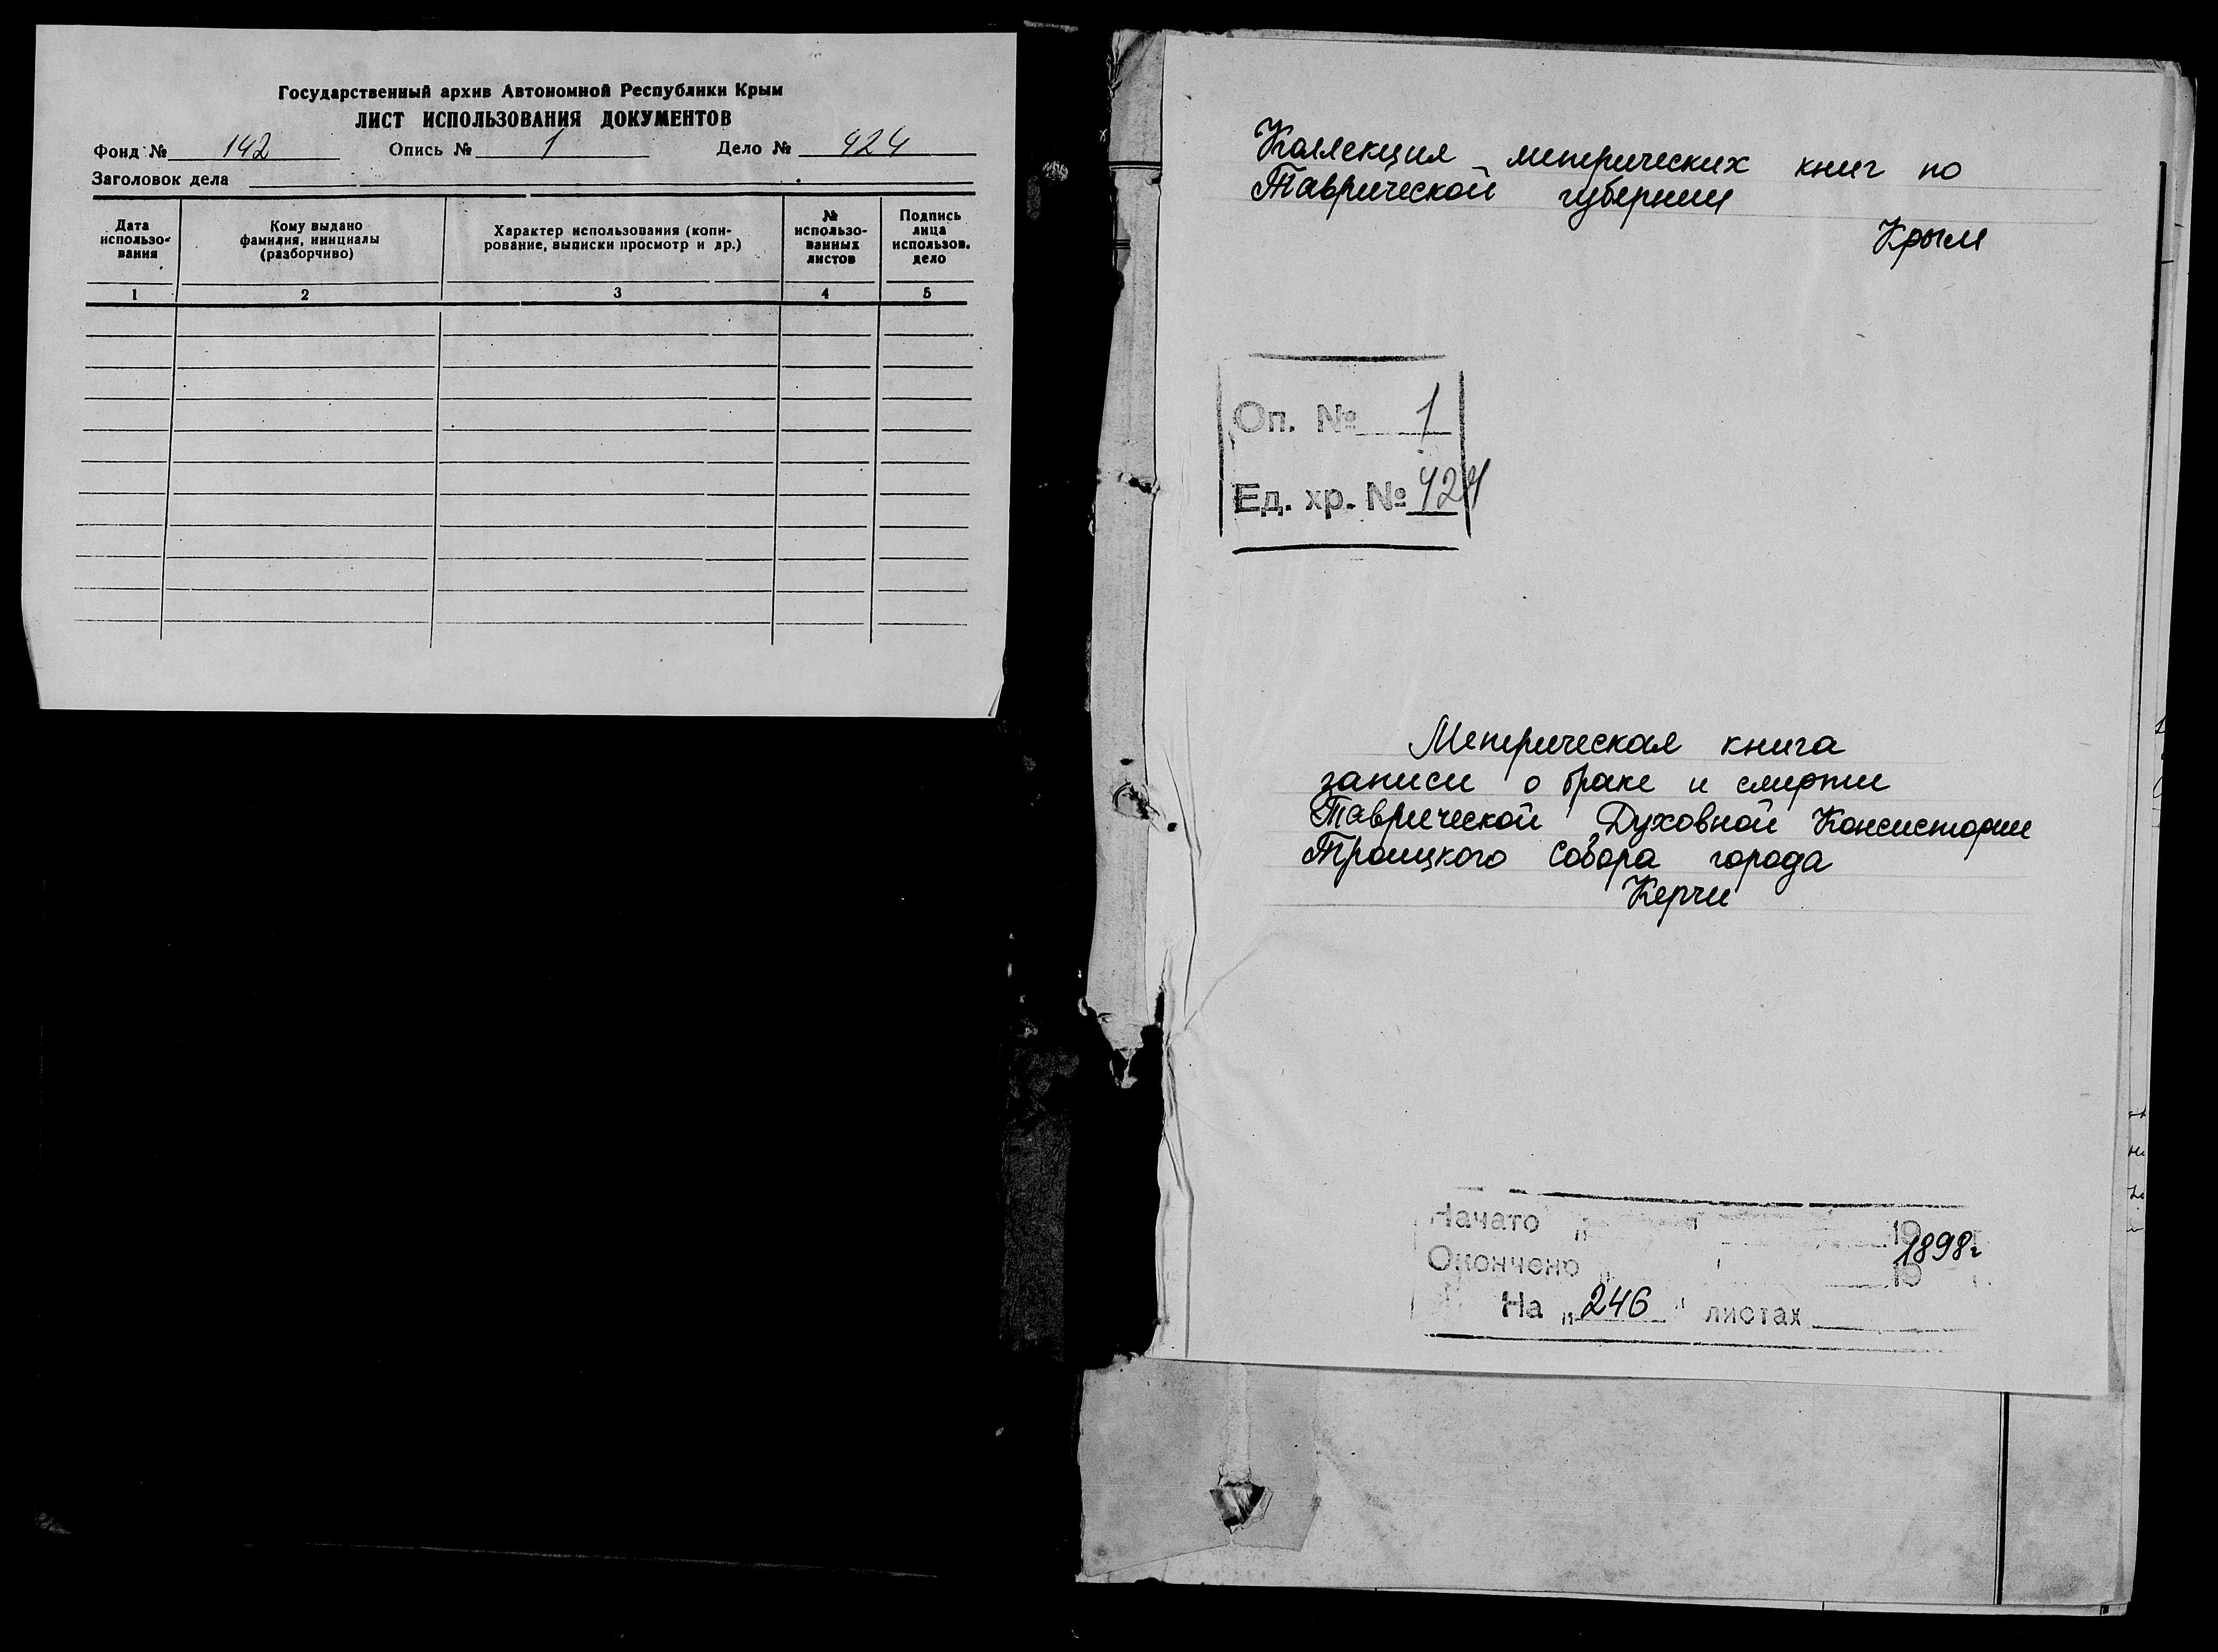 Государственный архив Автономной Республики Крым
ЛИСТ ИСПОЛЬЗОВАНИЯ ДОКУМЕНТОВ
Фонд № 142 Опись № 1 Дело № 424
Заголовок дела
Дата использо-вания
Кому выдано фамилия, инициалы (разборчиво)
Характер использования (копи-рование, выписки просмотр и др.)
№ использо-ванных листов
Подпись лица использов. дело
1 2 3 4 5
Коллекция метрических книг по
Таврической губернии
Крым
Оп. № 1
Ед. хр. № 424
Метрическая книга
записи о браке и смерти
Таврической Духовной Консистории
Троицкого собора города
Керчи
Начато " " 19
1898г
Окончено " " 19
На "246" листах